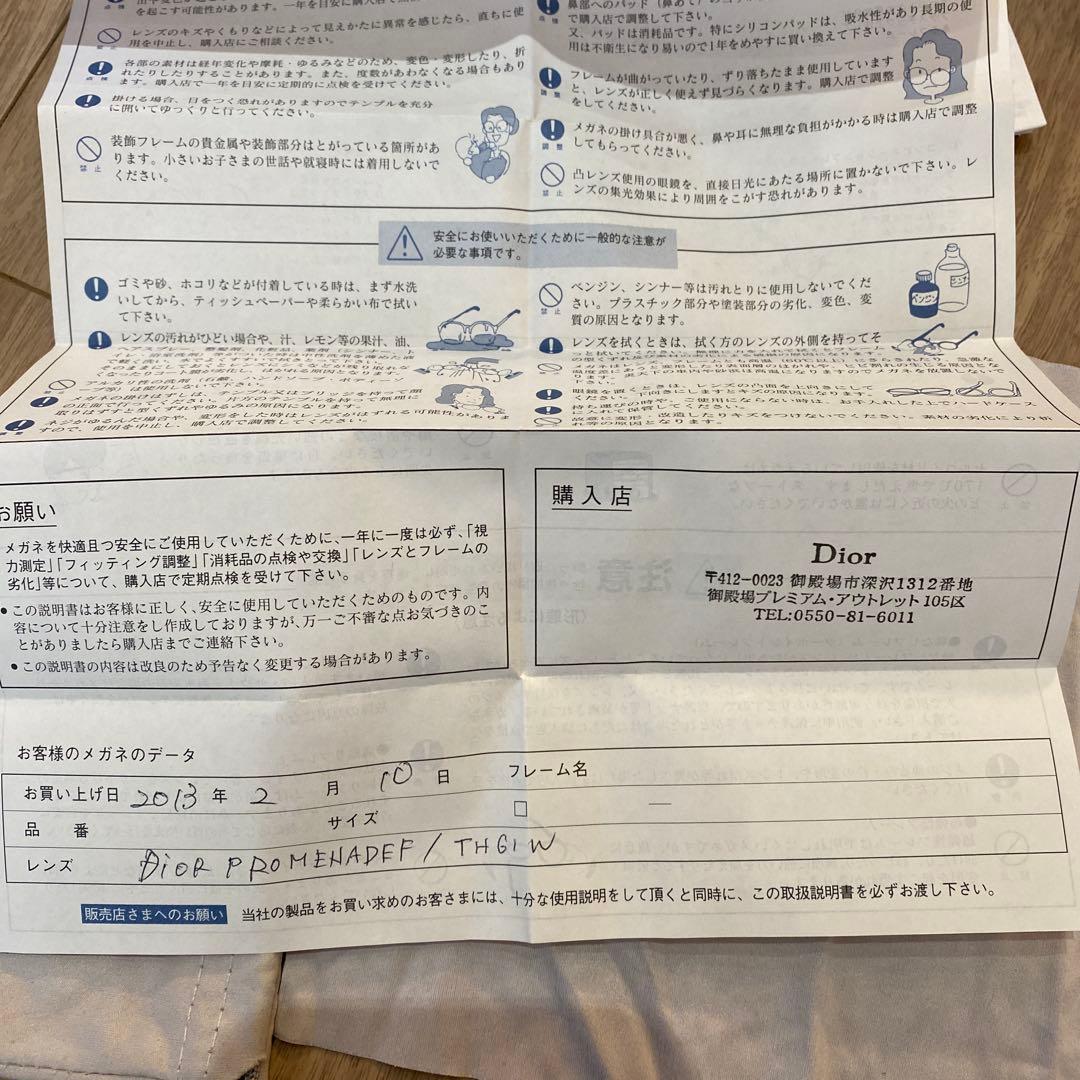 を起こす可能性があります。一年を目安に購入店で
レンズのキズやくもりなどによって見えかたに異常を感じたら、直ちに使
用を中止し、購入店にご相談ください。
各部の素材は経年変化や摩耗・ゆるみなどのため、変色・変形したり、折
れたりしたりすることがあります。また、度数があわなくなる場合もあり
ます。購入店で一年を目安に定期的に点検を受けてください。
点検
掛ける場合、目をつく恐れがありますのでテンプルを充分
に開いてゆっくりと行ってください。
装飾フレームの貴金属や装飾部分はとがっている箇所があ
ります。小さいお子さまの世話や就寝時には着用しないで
ください。
禁止
鼻部へのパッド(鼻あて)の
で購入店で調整して下さい。
又、パッドは消耗品です。特にシリコンパッドは、吸水性があり長期の使
用は不衛生になり易いので1年をめやすに買い換えて下さい。
点検
フレームが曲がっていたり、ずり落ちたまま使用しています
と、レンズが正しく使えず見づらくなります。購入店で調整
をしてください。
調整
メガネの掛け具合が悪く、鼻や耳に無理な負担がかかる時は購入店で調整
してもらってください。
調整
凸レンズ使用の眼鏡を、直接日光にあたる場所に置かないで下さい。レ
ンズの集光効果により周囲をこがす恐れがあります。
禁止
安全にお使いいただくために一般的な注意が
必要な事項です。
ゴミや砂、ホコリなどが付着している時は、まず水洗
いしてから、ティッシュペーパーや柔らかい布で拭い
て下さい。
レンズの汚れがひどい場合や、汁、レモン等の果汁、油、
メガネの掛けはずしは、テンプルもしくはブリッジを持って顔
取りはずすと型くずれやゆるみの原因になります。
ネジがゆるんだ場合や、変形をした時はレンズがはずれる可能性がありま
すので、使用を中止し、購入店で調整してください。
ベンジン、シンナー等は汚れとりに使用しないでくだ
さい。プラスチック部分や塗装部分の劣化、変色、変
質の原因となります。
ベンジン
レンズを拭くときは、拭く方のレンズの外側を持ってそ
眼鏡を置くときは、レンズの凸面を上向きにして
ください。下向きにしますとキズの原因になります。
持ち運びの時や、ご使用にならない時は、お手入れをしたあとでメガネケース
に入れて保管してください。
故意に変形・改造したりキズをつけないでください。素材の劣化により折
れ等の原因となります。
お願い
メガネを快適且つ安全にご使用していただくために、一年に一度は必ず、「視
力測定」「フィッティング調整」「消耗品の点検や交換」「レンズとフレームの
劣化」等について、購入店で定期点検を受けて下さい。
●この説明書はお客様に正しく、安全に使用していただくためのものです。内
容について十分注意をし作成しておりますが、万一ご不審な点お気づきのこ
とがありましたら購入店までご連絡下さい。
●この説明書の内容は改良のため予告なく変更する場合があります。
購入店
Dior
〒412-0023 御殿場市深沢1312番地
御殿場プレミアム・アウトレット105区
TEL:0550-81-6011
お客様のメガネのデータ
お買い上げ日 2013 年 2 月 10 日 フレーム名
品番 サイズ □ ―
レンズ DIOR PROMENADEF / THG1W
販売店さまへのお願い 当社の製品をお買い求めのお客さまには、十分な使用説明をして頂くと同時に、この取扱説明書を必ずお渡し下さい。